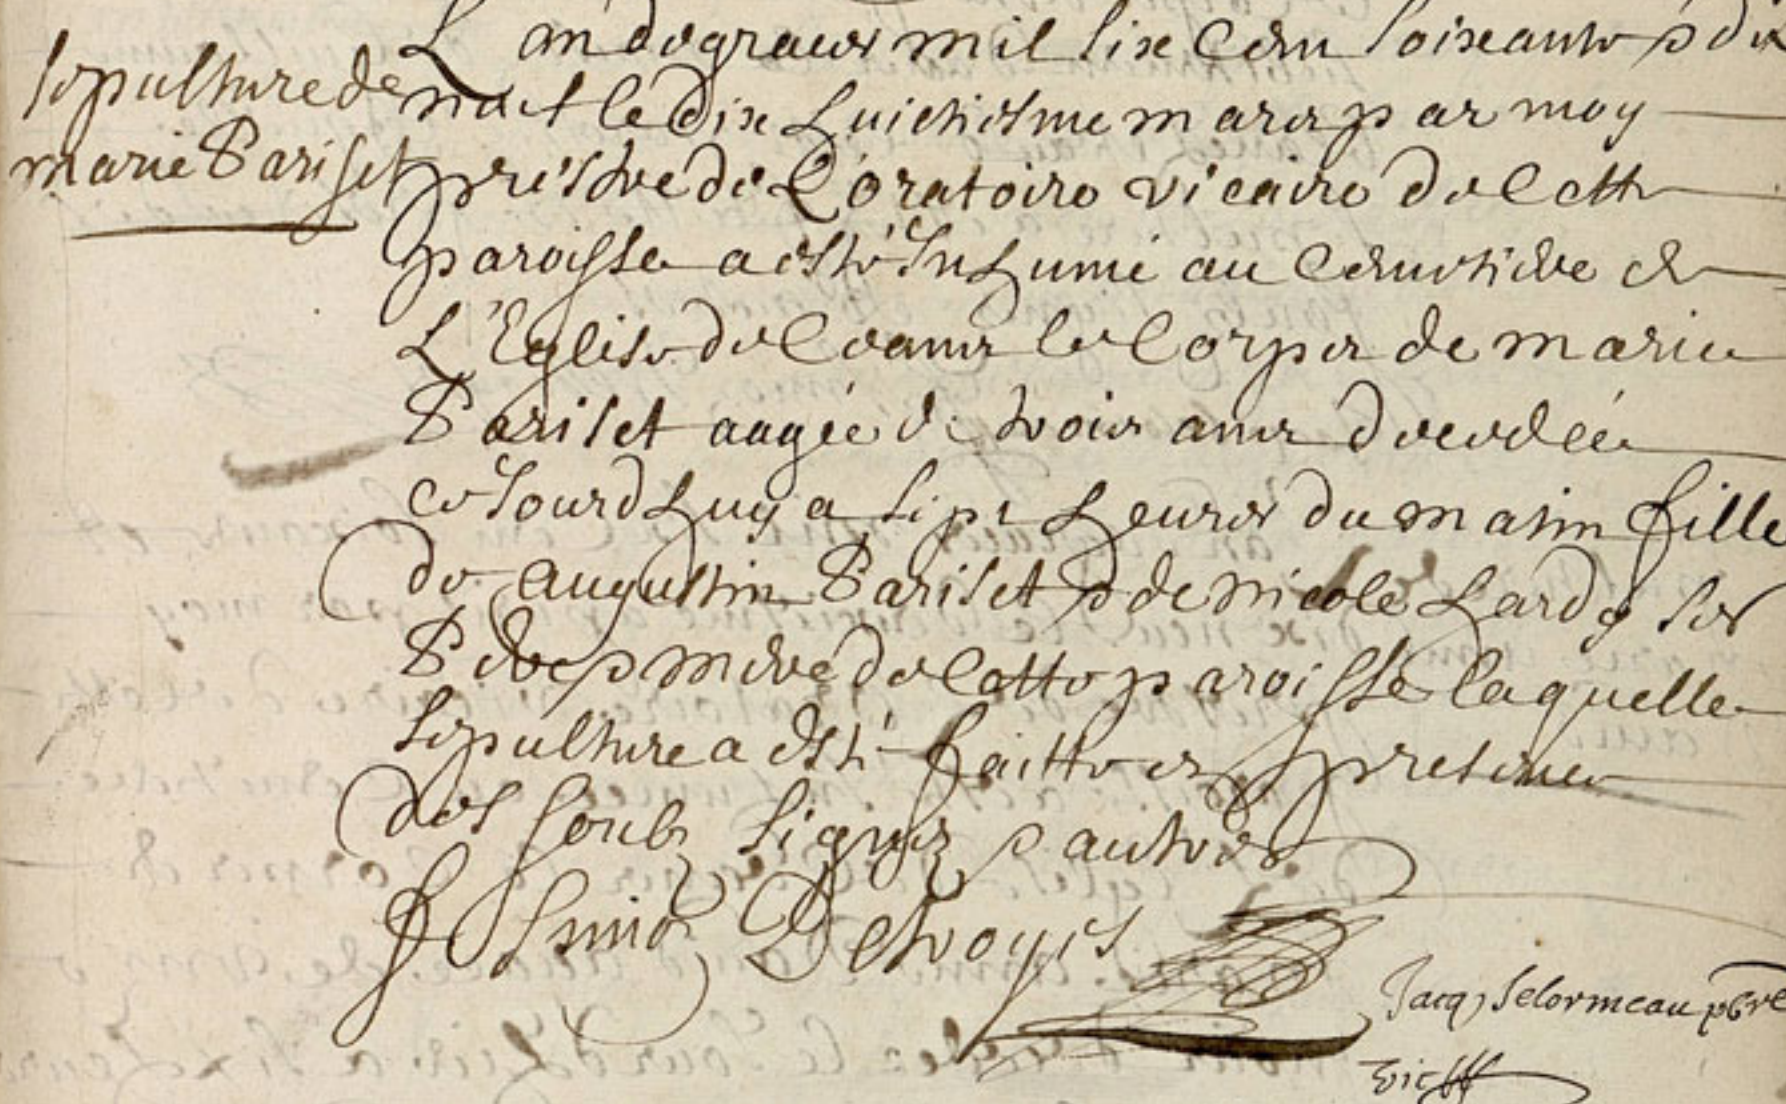 sepulture de
marie Pariset
L an de grace mil six cens soixante & dix
neuf le dix huictiesme mars par moy
prestre de L'oratoire vicaire de cette
paroisse a esté Inhumé au cemetiere de
L'Eglise de ceans le corps de marie
Pariset aagée de trois ans decedée
ce Jourdhuy a sept heures du matin fille
de augustin Pariset & de nicole Lardy ses
Pere & mere de cette paroisse laquelle
sepulture a esté faitte es presence
des soubz signez & autres
Destroyes
Jacq Delormeau pbre
vic